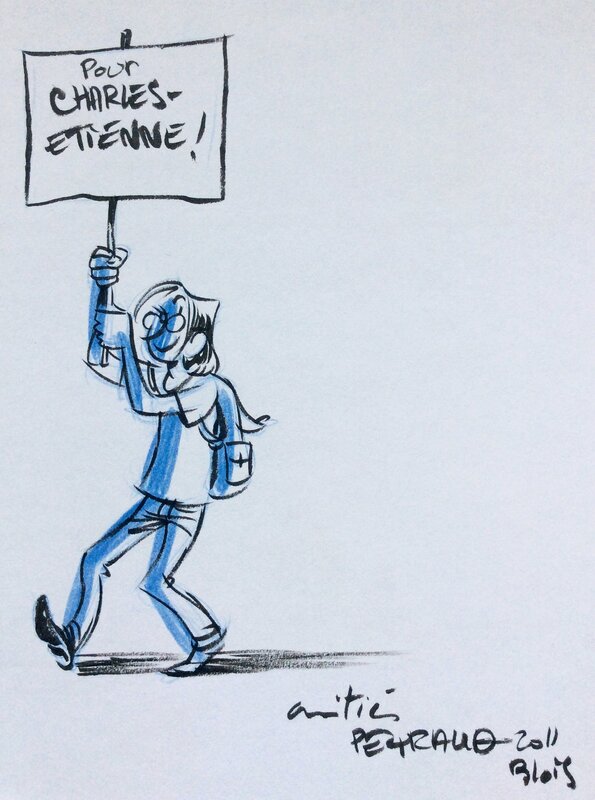 Pour
CHARLES-
ETIENNE!
amitiés
PEYRAUD-2011
Blois